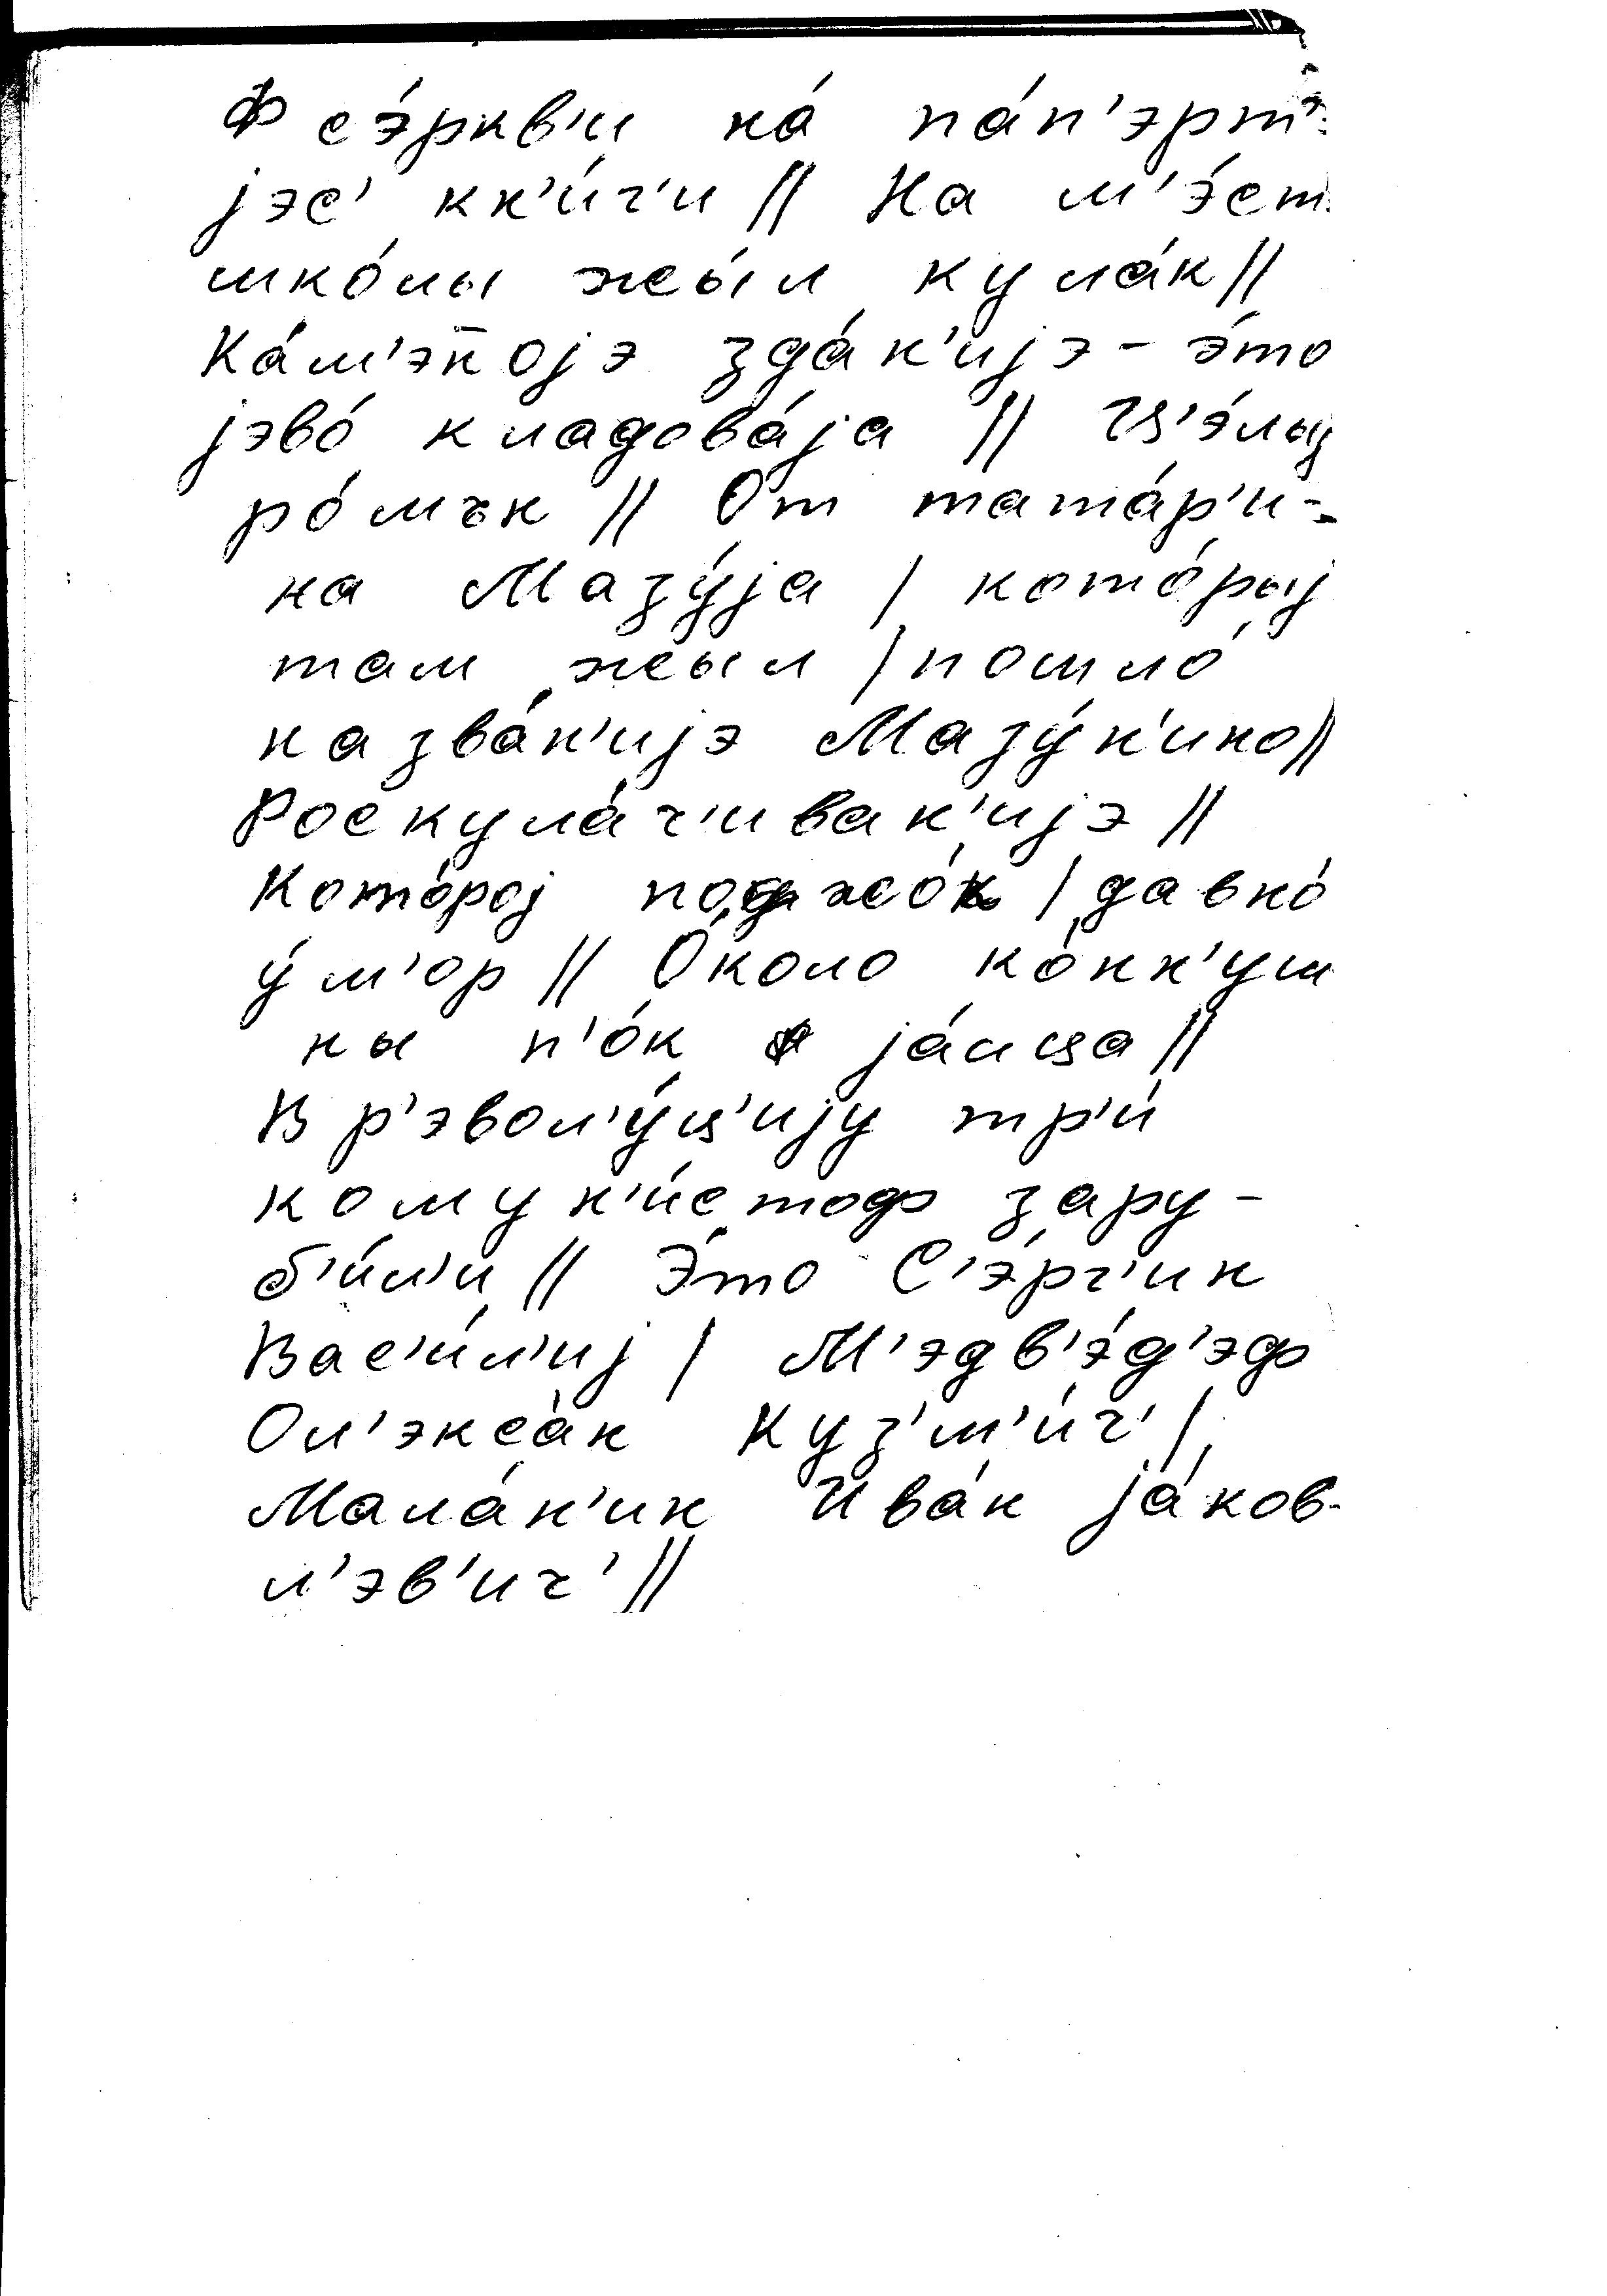 Ф сэ́ркв'и на́ па́п'эрт'
jэс' кн'и́г'и || На м'э́ст
шко́лы жы́л кула́к ||
Ка́м'эн̄ојэ зда́н'ијэ - э́то
јэво́ кладова́ја || Ц'э́лыј
ро́мън || От тата́р'и-
на Мазу́ја | кото́рыј
там жыл | пошло́
назва́н'ијэ Мазу́н'ино ||
Роскула́ч'иван'ијэ ||
Кото́рој поджо́к | давно́
у́м'ор || О́коло ко́нн'уш
ны п'о́к ја́ица ||
В р'эвол'у́ц'ију тр'и́
комун'и́стоф зару-
б'и́л'и || Э́то С'э́рг'ин
Вас'и́л'иј | М'эдв'э́д'эф
Ол'экса́н Куз'м'и́ч' |
Мала́н'ин Ива́н ја́ков-
л'эв'ич' ||